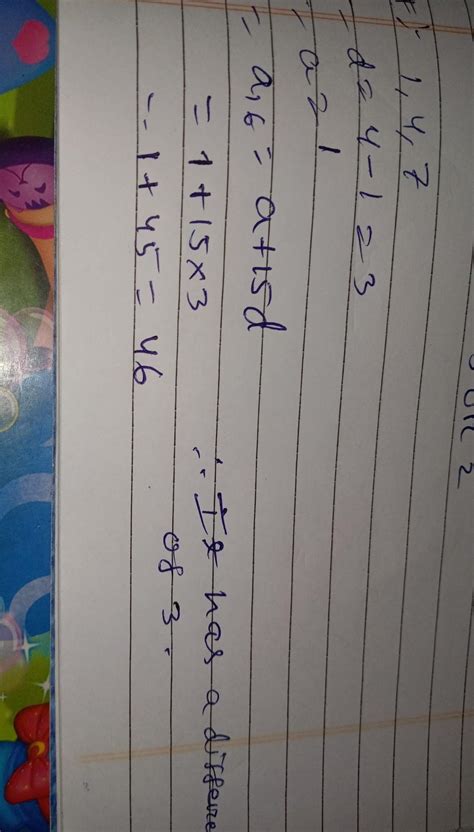 1, 4, 7
= d = 4 - 1 = 3
= a = 1
= a16 = a + 15d
= 1 + 15 × 3
∴ 1 + 45 = 46
∴ It has a differe
of 3.